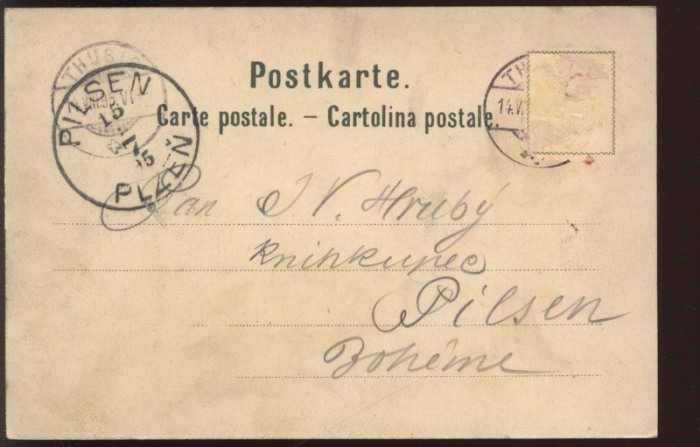 Postkarte.
Carte postale. – Cartolina postale.
THUS
PILSEN
15
7
95
PLZEŇ
TH
14.V
Pan J. V. Hrubý
knihkupec
Pilsen
Bohême